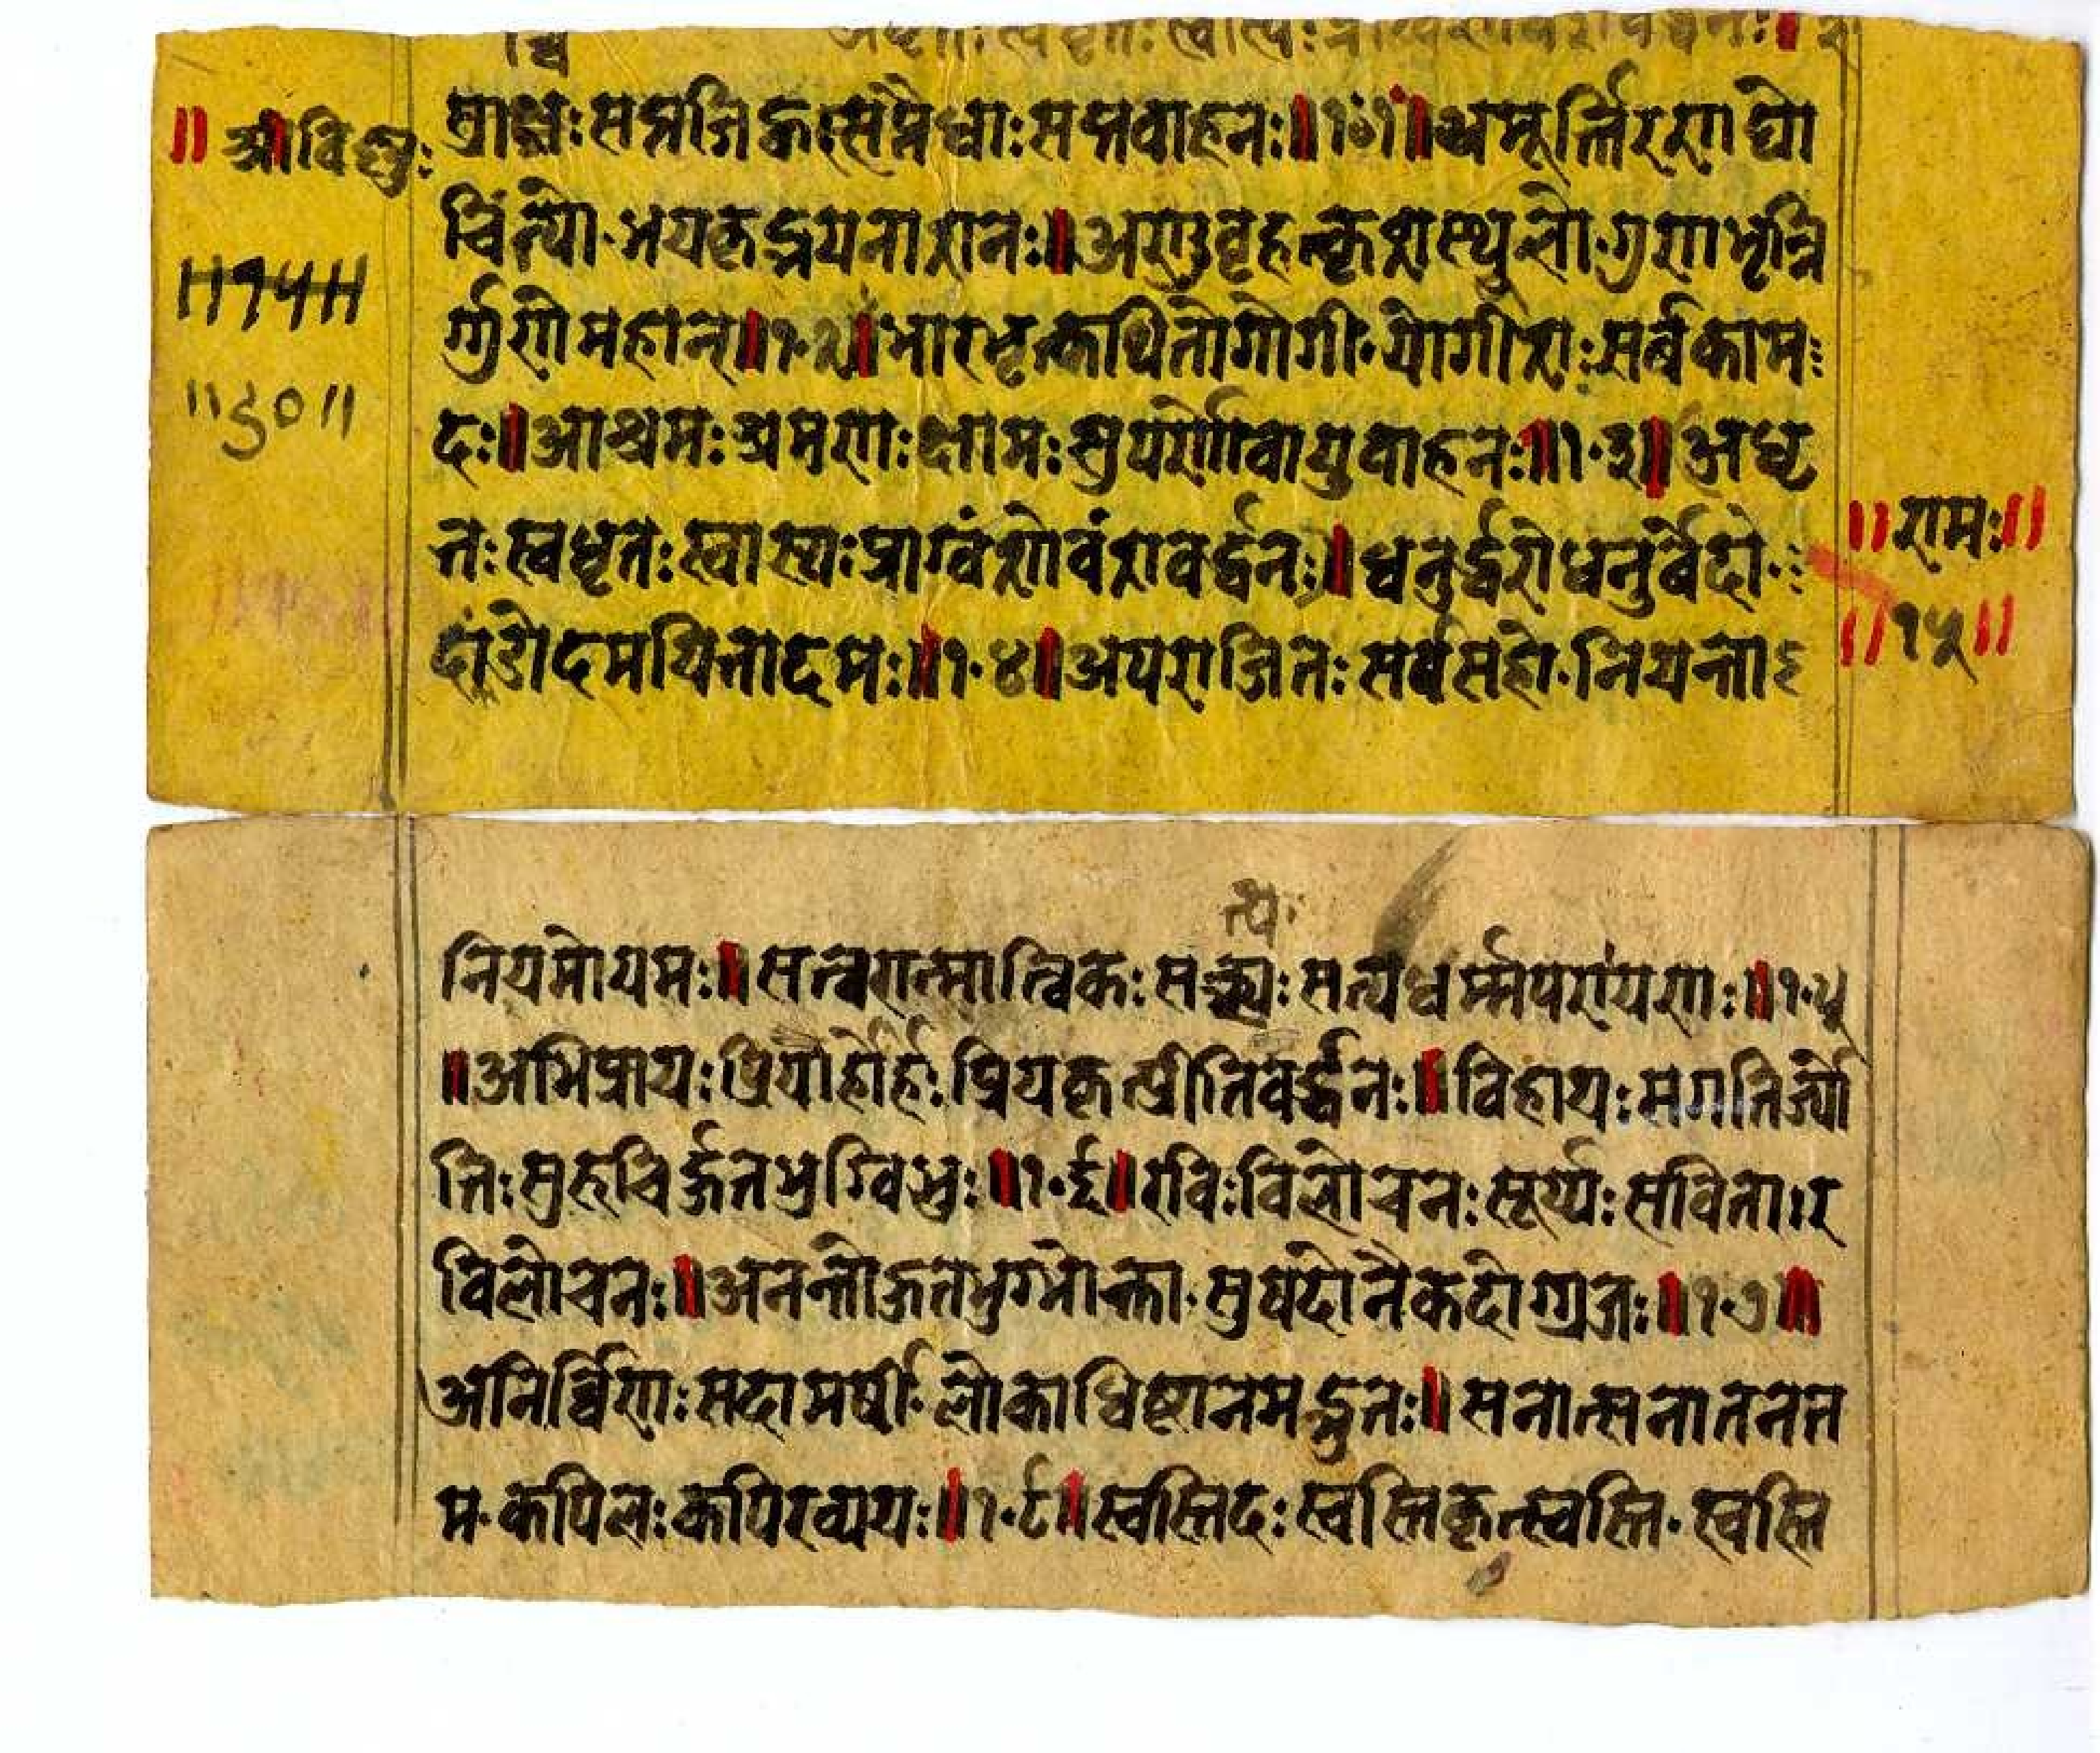 चि
अधृतः स्वधृतः स्वास्यः प्राग्वंशोवंशवर्द्धनः॥
॥ श्रीविष्णुः
॥१५॥
॥६०॥
स्राक्षः सप्तजिह्वःसप्तैधाः सप्तवाहनः॥१०१॥ अमूर्त्तिरणघो
चिंत्यो·भयकृद्भयनाशनः॥अणुवृहत्कृशस्थुलो·गुणभृन्नि
र्गुणोमहान्॥१·२॥भारभृत्कथितोगोगी·योगीशः सर्बकाम
दः॥आश्रमः श्रमणः क्षामः सुपर्णोवायुवाहनः॥१·३॥अधृ
तः स्वधृतः स्वास्यः प्राग्वंशोवंशवर्द्धनः॥धनुर्द्धरोधनुर्वेदो·
दंडोदमयितादमः॥१·४॥अपराजितः सर्वसहो·नियन्ता
॥रामः॥
॥१५॥
त्यः
नियमोयमः॥सत्वरान्सात्विकः सत्यः सत्यधर्म्मपरायणः॥१·५
॥अभिप्रायः प्रियार्होर्हः प्रियकृत्प्रीतिवर्द्धनः॥विहायः सगतिर्ज्यो
तिः सुरुचिर्हुतभुग्विभुः॥१·६॥रविः विलोचनः सूर्य्यः सविता।र
विलोचनः॥अनन्तोहुतभुग्भोक्ता·सुषदोनैकदोग्रजः॥१·७॥
अनिर्व्विणः सदामर्षी·लोकाधिष्टानमद्भुतः॥सनात्सनातनत
म·कपिलः कपिरव्ययः॥१·८॥स्वस्तिदः स्वस्तिकृत्स्वस्ति·स्वस्ति